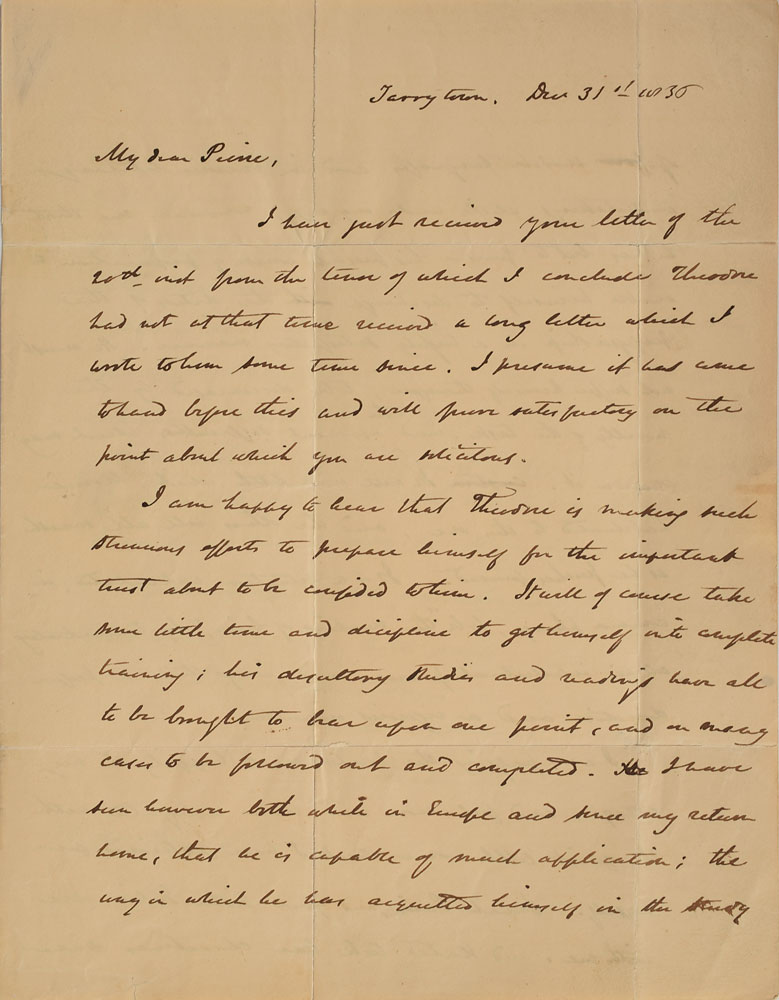 Tarrytown. Dec 31st 1836
My dear Pierre,
I have just received your letter of the
inst from the tenor of which I conclude Theodore
had not at that time received a long letter which I
wrote to him some time since. I presume it has come
to hand before this and will prove satisfactory on the
point about which you are solicitous.
I am happy to hear that Theodore is making such
strenuous efforts to prepare himself for the important
trust about to be confided to him. It will of course take
some little time and discipline to get himself into complete
training; his desultory studies and readings have all
to be brought to bear upon one point, and in many
cases to be followed out and completed. I have
seen however both while in Europe and since my return
home, that he is capable of much application; the
way in which he has acquitted himself in the study